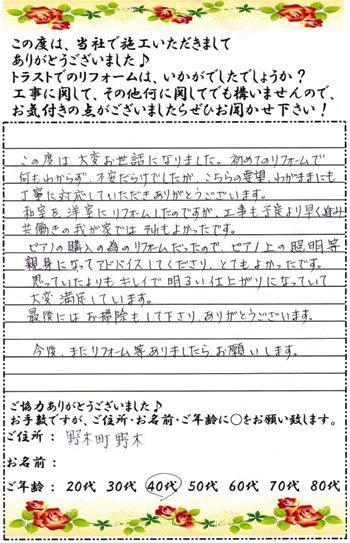 この度は、当社で施工いただきまして
ありがとうございました♪
トラストでのリフォームは、いかがでしたでしょうか?
工事に関して、その他何に関してでも構いませんので、
お気付きの点がございましたらぜひお聞かせ下さい!
この度は大変お世話になりました。初めてのリフォームで
何もわからず、不安だらけでしたが、こちらの要望、わがままにも
丁寧に対応していただきありがとうございます。
和室を洋室にリフォームしたのですが、工事も予定より早く進み
共働きの我が家ではそれもよかったです。
ピアノの購入の為のリフォームだったので、ピアノ上の照明等
親身になってアドバイスしてくださり、とてもよかったです。
思っていたよりもキレイで明るい仕上がりになっていて
大変満足しています。
最後にはお掃除もして下さり、ありがとうございます。
今後、またリフォーム等ありましたら、お願いします。
ご協力ありがとうございました♪
お手数ですが、ご住所・お名前・ご年齢に○をお願い致します。
ご住所: 野木町野木
お名前:
ご年齢: 20代 30代 40代 50代 60代 70代 80代